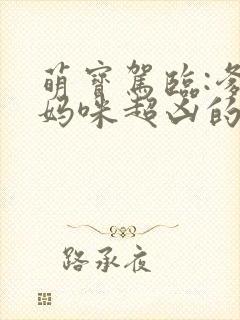 萌寶駕臨:爹
媽咪超凶的
路承夜